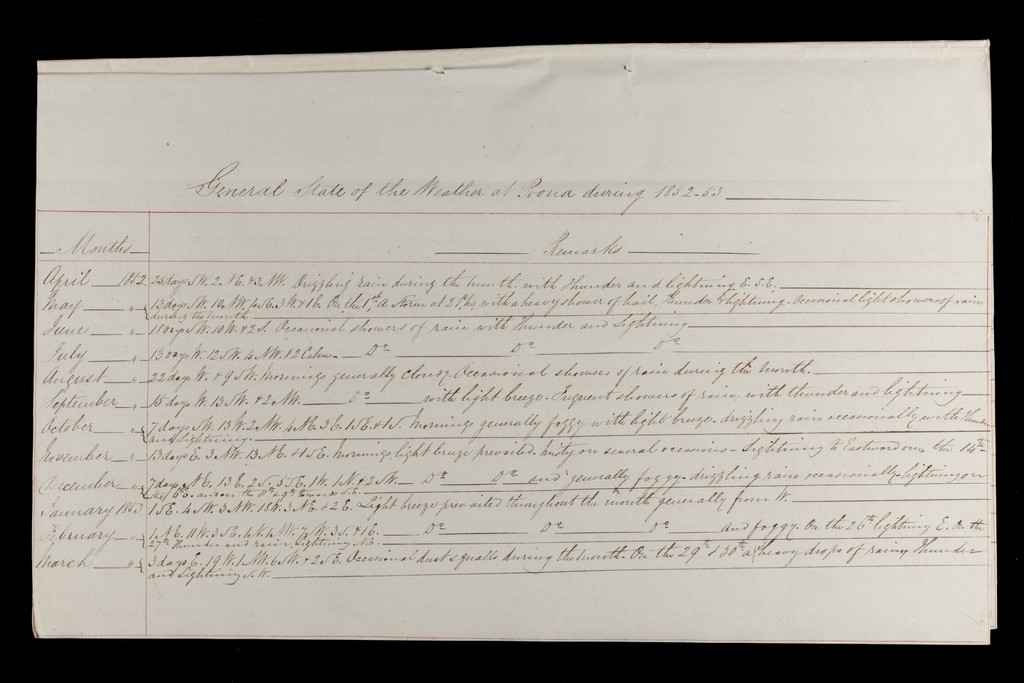 General State of the Weather at Poona during 1852-53
Months Remarks
April 1852 25 days S.W. 2. S.E. & 3. N.W. Drizzling rain during the month, with Thunder and lightning E.S.E.
May " 13 days S.W. 10. N.W. 4. S.E. 3. W. & 1 E. On the 1st A storm at 2 P.M. with a heavy shower of hail, Thunder & lightning. Occasional light showers of rain
during the month.
June " 18 days S.W. 10 W. & 2 S. Occasional showers of rain with Thunder and Lightning
July " 13 days W. 12 S.W. 4. N.W. & 2 Calm. Do Do Do
August " 22 days W. & 9 S.W. Mornings generally cloudy Occasional showers of rain during the Month.
September " 15 days W. 13 S.W. & 2 N.W. Do with light breeze. Frequent showers of rain, with thunder and lightning
October " 7 days S.W. 13 W. 2 N.W. 4 N.E. 3 E. 1 S.E. & 1 S. Mornings generally foggy with light breeze. drizzling rain occasionally with Thunder
and lightning.
November " 13 days E. 3 N.W. 13 N.E. & 1 S.E. Mornings light breeze prevailed. misty on several occasions. Lightning to Eastward on the 14th
December " 7 days N.E. 13 E. 2 S. 5 S.E. 1 W. 1 N. & 2 S.W. Do Do and generally foggy. drizzling rain occasionally. lightning on
the 6 E. and on the 8th & 9th towards S.E.
January 1853 1 S.E. 4. S.W. 3 N.W. 18 W. 3 N.E. & 2 E. Light breeze prevailed throughout the month generally from W.
February " 1. N.E. 11 W. 3 S.E. 4. N. 4. N.W. 7. S.W. 3 S. & 1 E. Do Do Do and foggy. On the 26th lightning E. On the
27th Thunder and rain, Lightning N.E.
March " 3 days E. 19 W. 1. N.W. 6 S.W. & 2 S.E. Occasional dust squalls during the month. On the 29th & 30th a heavy drops of rain, Thunder
and Lightning S.W.